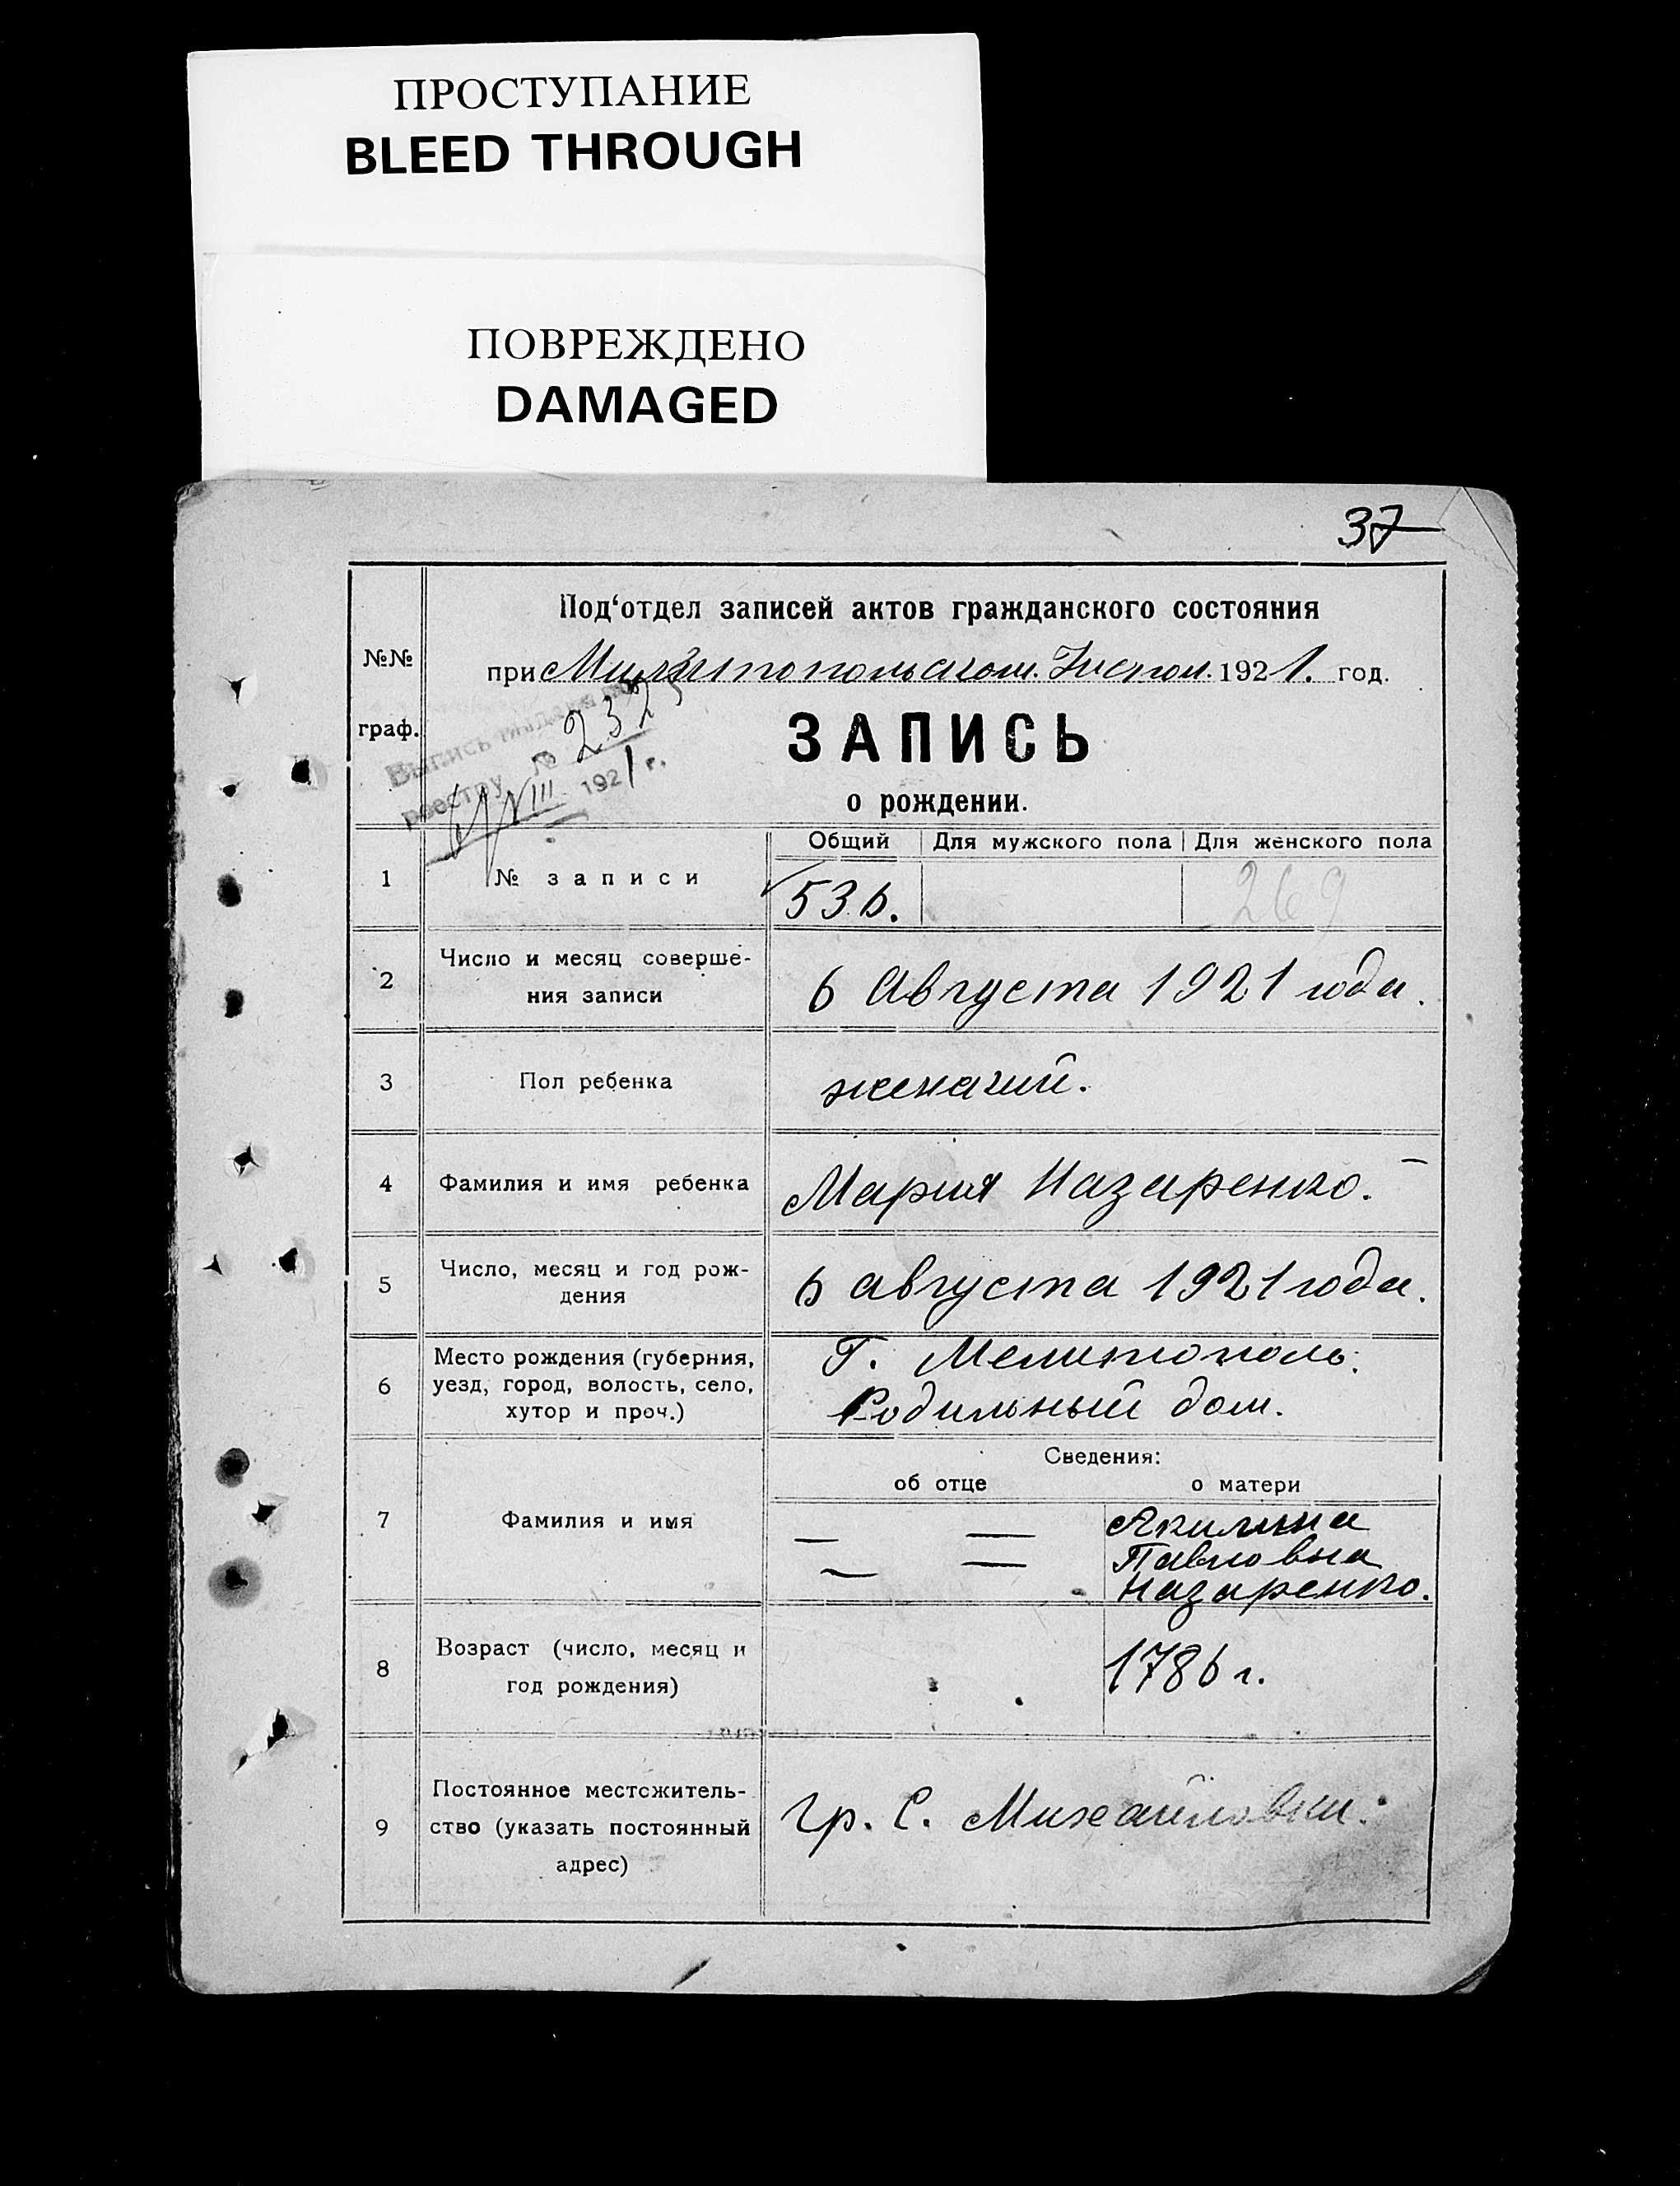 ПРОСТУПАНИЕ
BLEED THROUGH
ПОВРЕЖДЕНО
DAMAGED
37
№№
граф.
Под‘отдел записей актов гражданского состояния
при Мелитопольском. Исполк. 1921. год.
Выпись выдана по
реестру № 2325
6/VIII 1921 г.
ЗАПИСЬ
о рождении.
Общий Для мужского пола Для женского пола
1 № записи 536. 269
2 Число и месяц соверше-
ния записи
6 Августа 1921 года.
3 Пол ребенка женский.
4 Фамилия и имя ребенка Мария Назаренко.
5 Число, месяц и год рож-
дения
6 августа 1921 года.
6 Место рождения (губерния,
уезд, город, волость, село,
хутор и проч.)
Г. Мелитополь.
Родильный дом.
Сведения:
об отце о матери
7 Фамилия и имя
— — Акилина
— — Павловна
Назаренко.
8 Возраст (число, месяц и
год рождения)
1786 г.
9 Постоянное местожитель-
ство (указать постоянный
адрес)
гр. С. Михайловки.